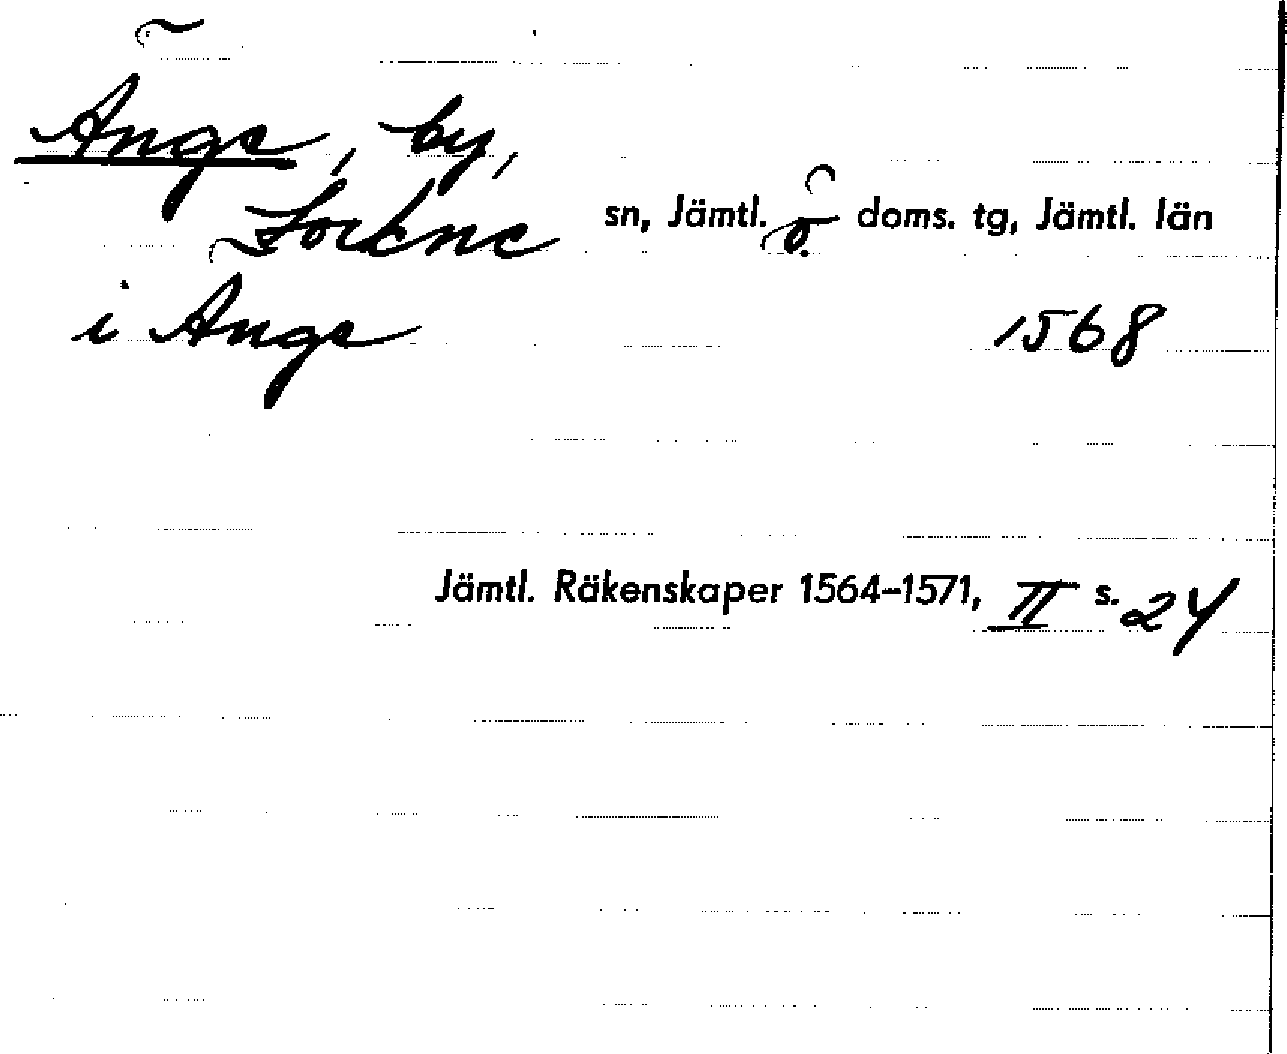 Änge, by,
Lockne sn, Jämtl. ö. doms. tg, Jämtl. län
i Ange 1568
Jämtl. Räkenskaper 1564–1571, II s. 24